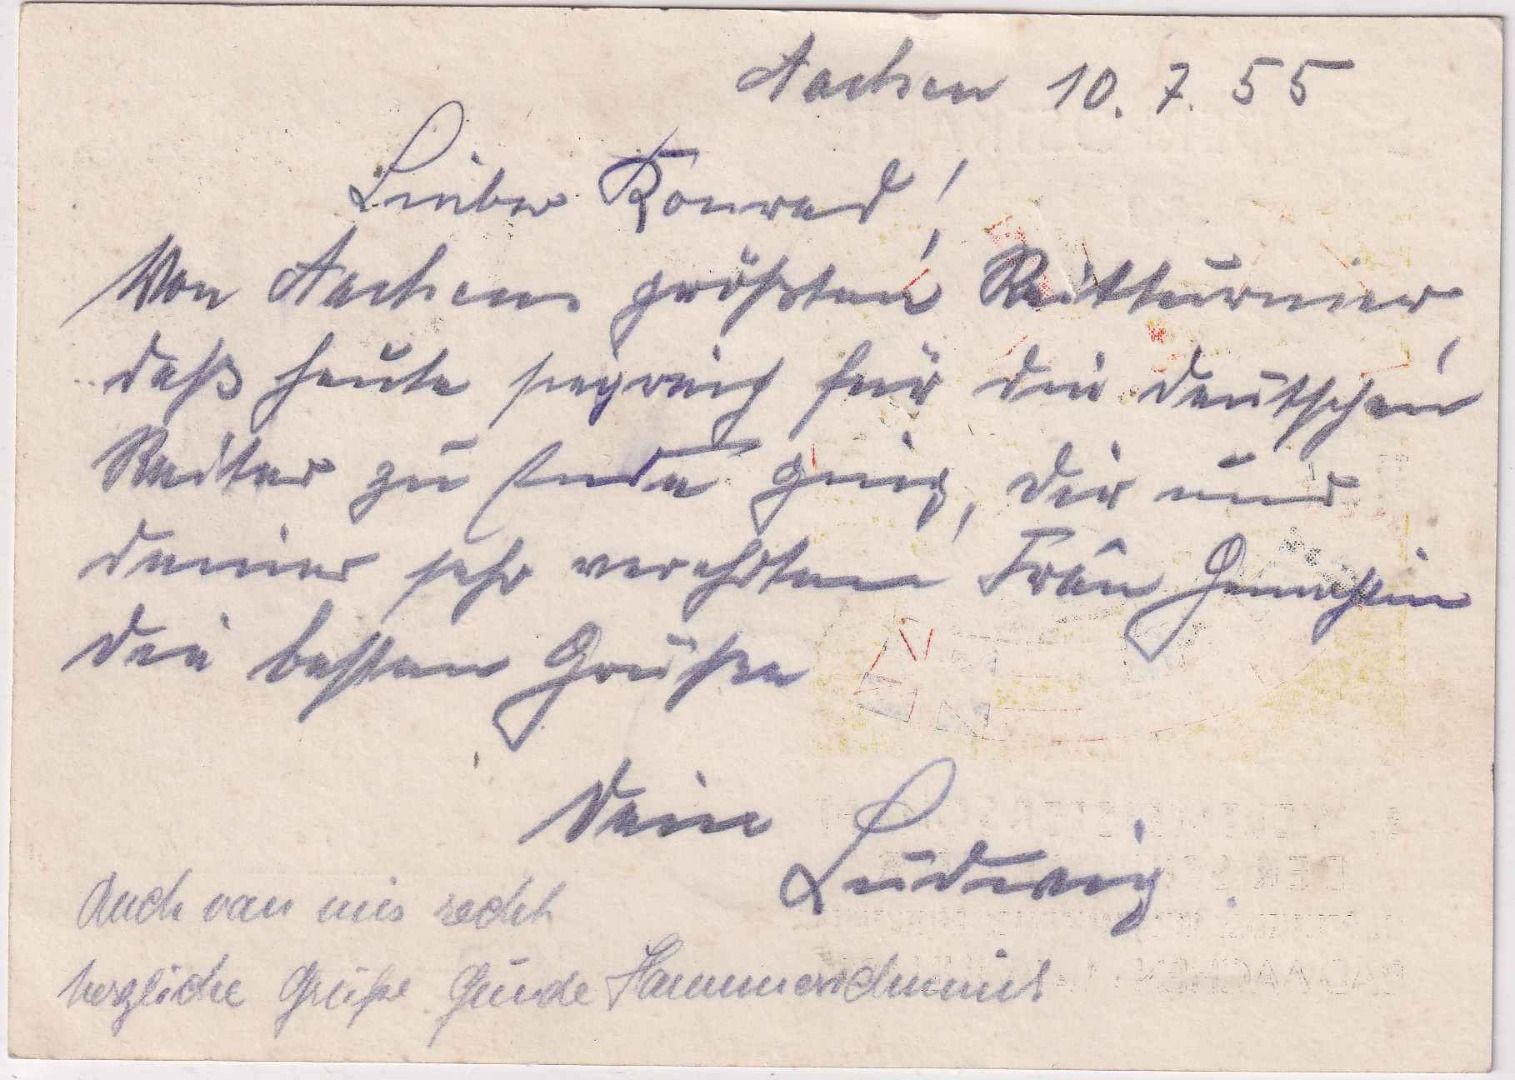 Aachen 10. 7. 55
Lieber Konrad!
Von Aachens größten Reitturnier,
daß heute siegreich für die deutschen
Reiter zu Ende ging, dir und
deiner sehr verehrten Frau Gemahlin
die besten Grüße
Dein
Ludwig
Auch von mir recht
herzliche Grüße Gunde Hammerschmidt